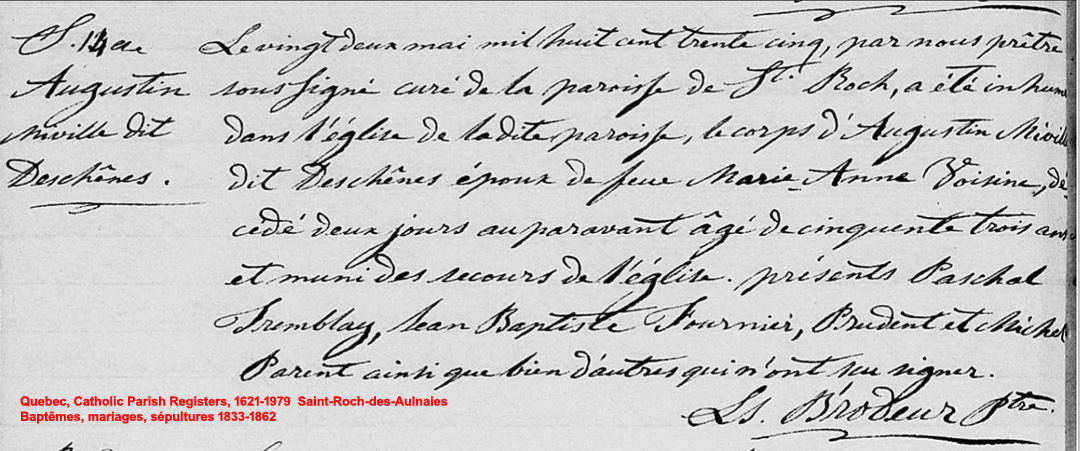 S. 14e
Augustin
Miville dit
Deschênes.
Le vingt deux mai mil huit cent trente cinq, par nous prêtre
soussigné curé de la paroisse de St. Roch, a été inhumé
dans l'église de ladite paroisse, le corps d'Augustin Miville
dit Deschênes époux de feue Marie-Anne Voisine, dé-
cédé deux jours auparavant âgé de cinquente trois ans
et muni des secours de l'église. présents Paschal
Tremblay, Jean Baptiste Fournier, Prudent et Michel
Parent ainsi que bien d'autres qui n'ont su signer.
Ls. Brodeur Ptre.
Quebec, Catholic Parish Registers, 1621-1979 Saint-Roch-des-Aulnaies
Baptêmes, mariages, sépultures 1833-1862